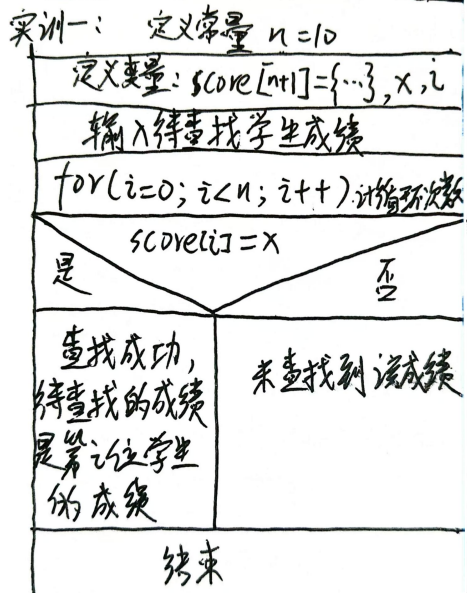 实训一： 定义常量 n=10
定义变量：score[n+1]={…}, x, i
输入待查找学生成绩
for(i=0; i<n; i++) 计循环次数
score[i]=x
是 否
查找成功，
待查找的成绩
是第i位学生
的成绩
未查找到该成绩
结束